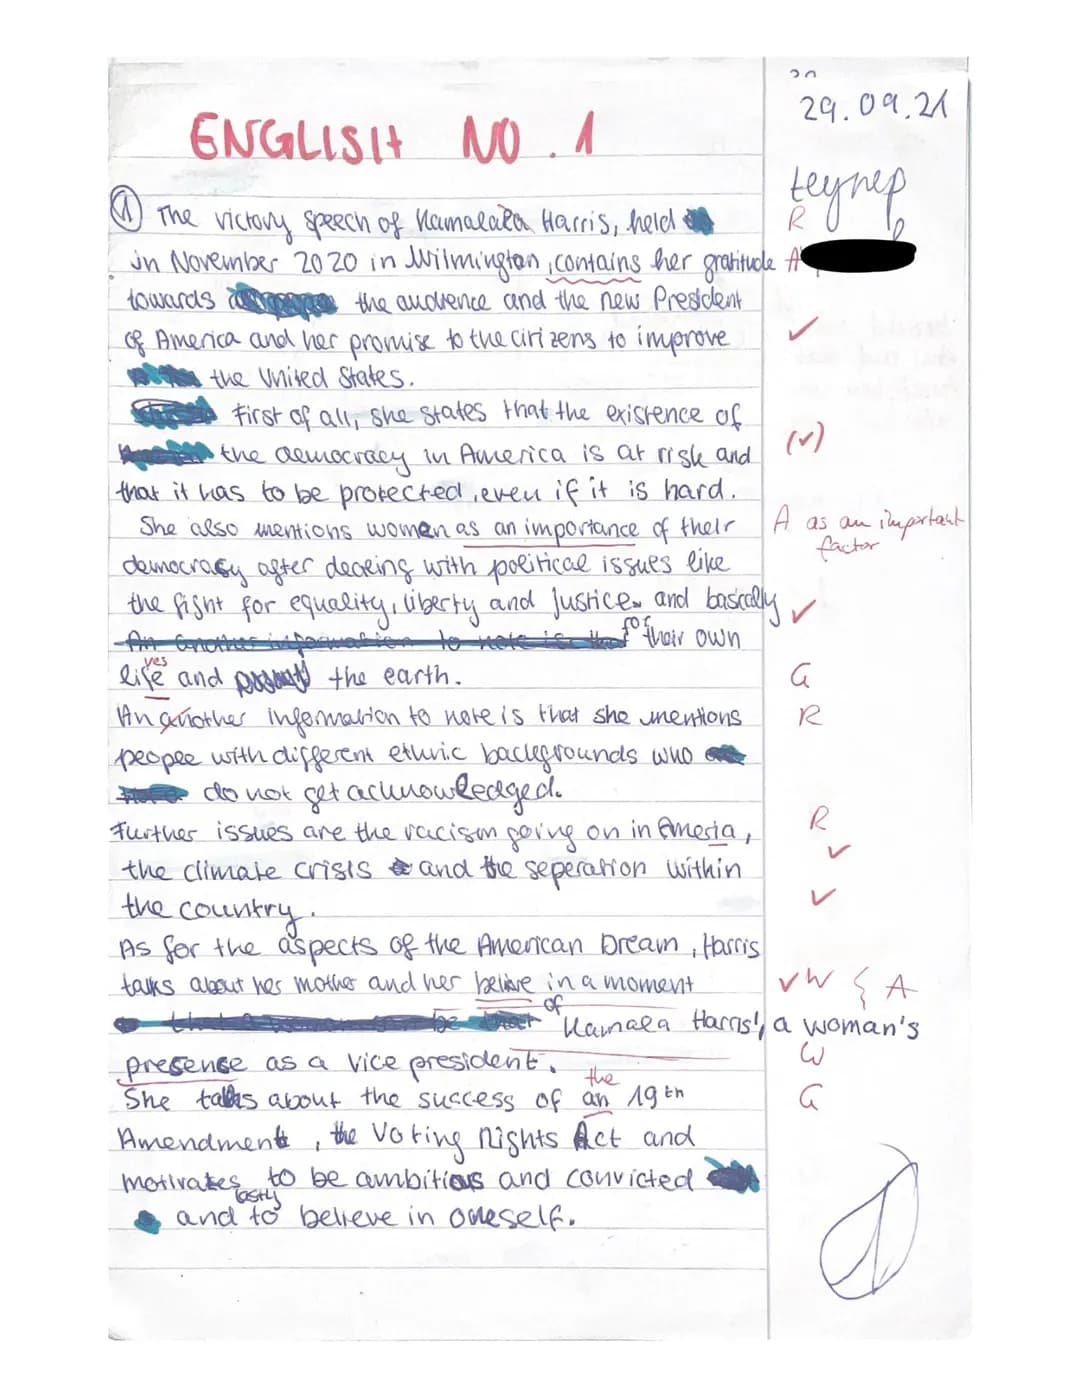 29.09.21
ENGLISH NO. 1
① The victory speech of Kamalala Harris, held R
in November 2020 in Wilmington, contains her gratitude A
towards the audience and the new President
of America and her promise to the citizens to improve ✓
the United States.
First of all, she states that the existence of
the democracy in America is at risk and (✓)
that it has to be protected, even if it is hard.
She also mentions women as an importance of their A as an important
factor
democrasy after dealing with political issues like
the fight for equality, liberty and justice and basically ✓
for their own
yes
life and the earth. G
An another information to note is that she mentions R
people with different ethnic backgrounds who
do not get acknowledged.
Further issues are the racism going on in Ameria, R
the climate crisis and the seperation within ✓
the country. ✓
As for the aspects of the American Dream, Harris
talks about her mother and her belive in a moment ✓ W { A
of Kamala Harris', a woman's
presence as a vice president. W
the
She talks about the success of an 19th G
Amendment, the Voting Rights Act and
motivates to be ambitious and convicted
lastly
and to believe in oneself.